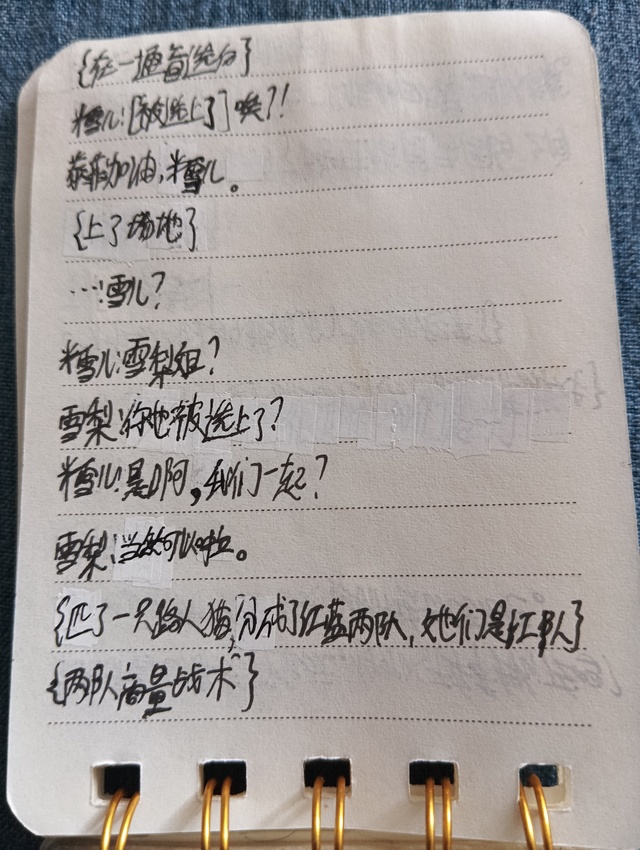 {在一通旨选台}
糯儿:[被选上了]唉?!
莓莓加油,糯雪儿。
{上了场地}
…:雪儿?
糯雪儿:雪梨姐?
雪梨:你也被选上了?
糯雪儿:是啊,我们一起?
雪梨:当然可以啦。
{匹了一只路人猫,分成了红蓝两队,她们是红队}
{两队商量战术}